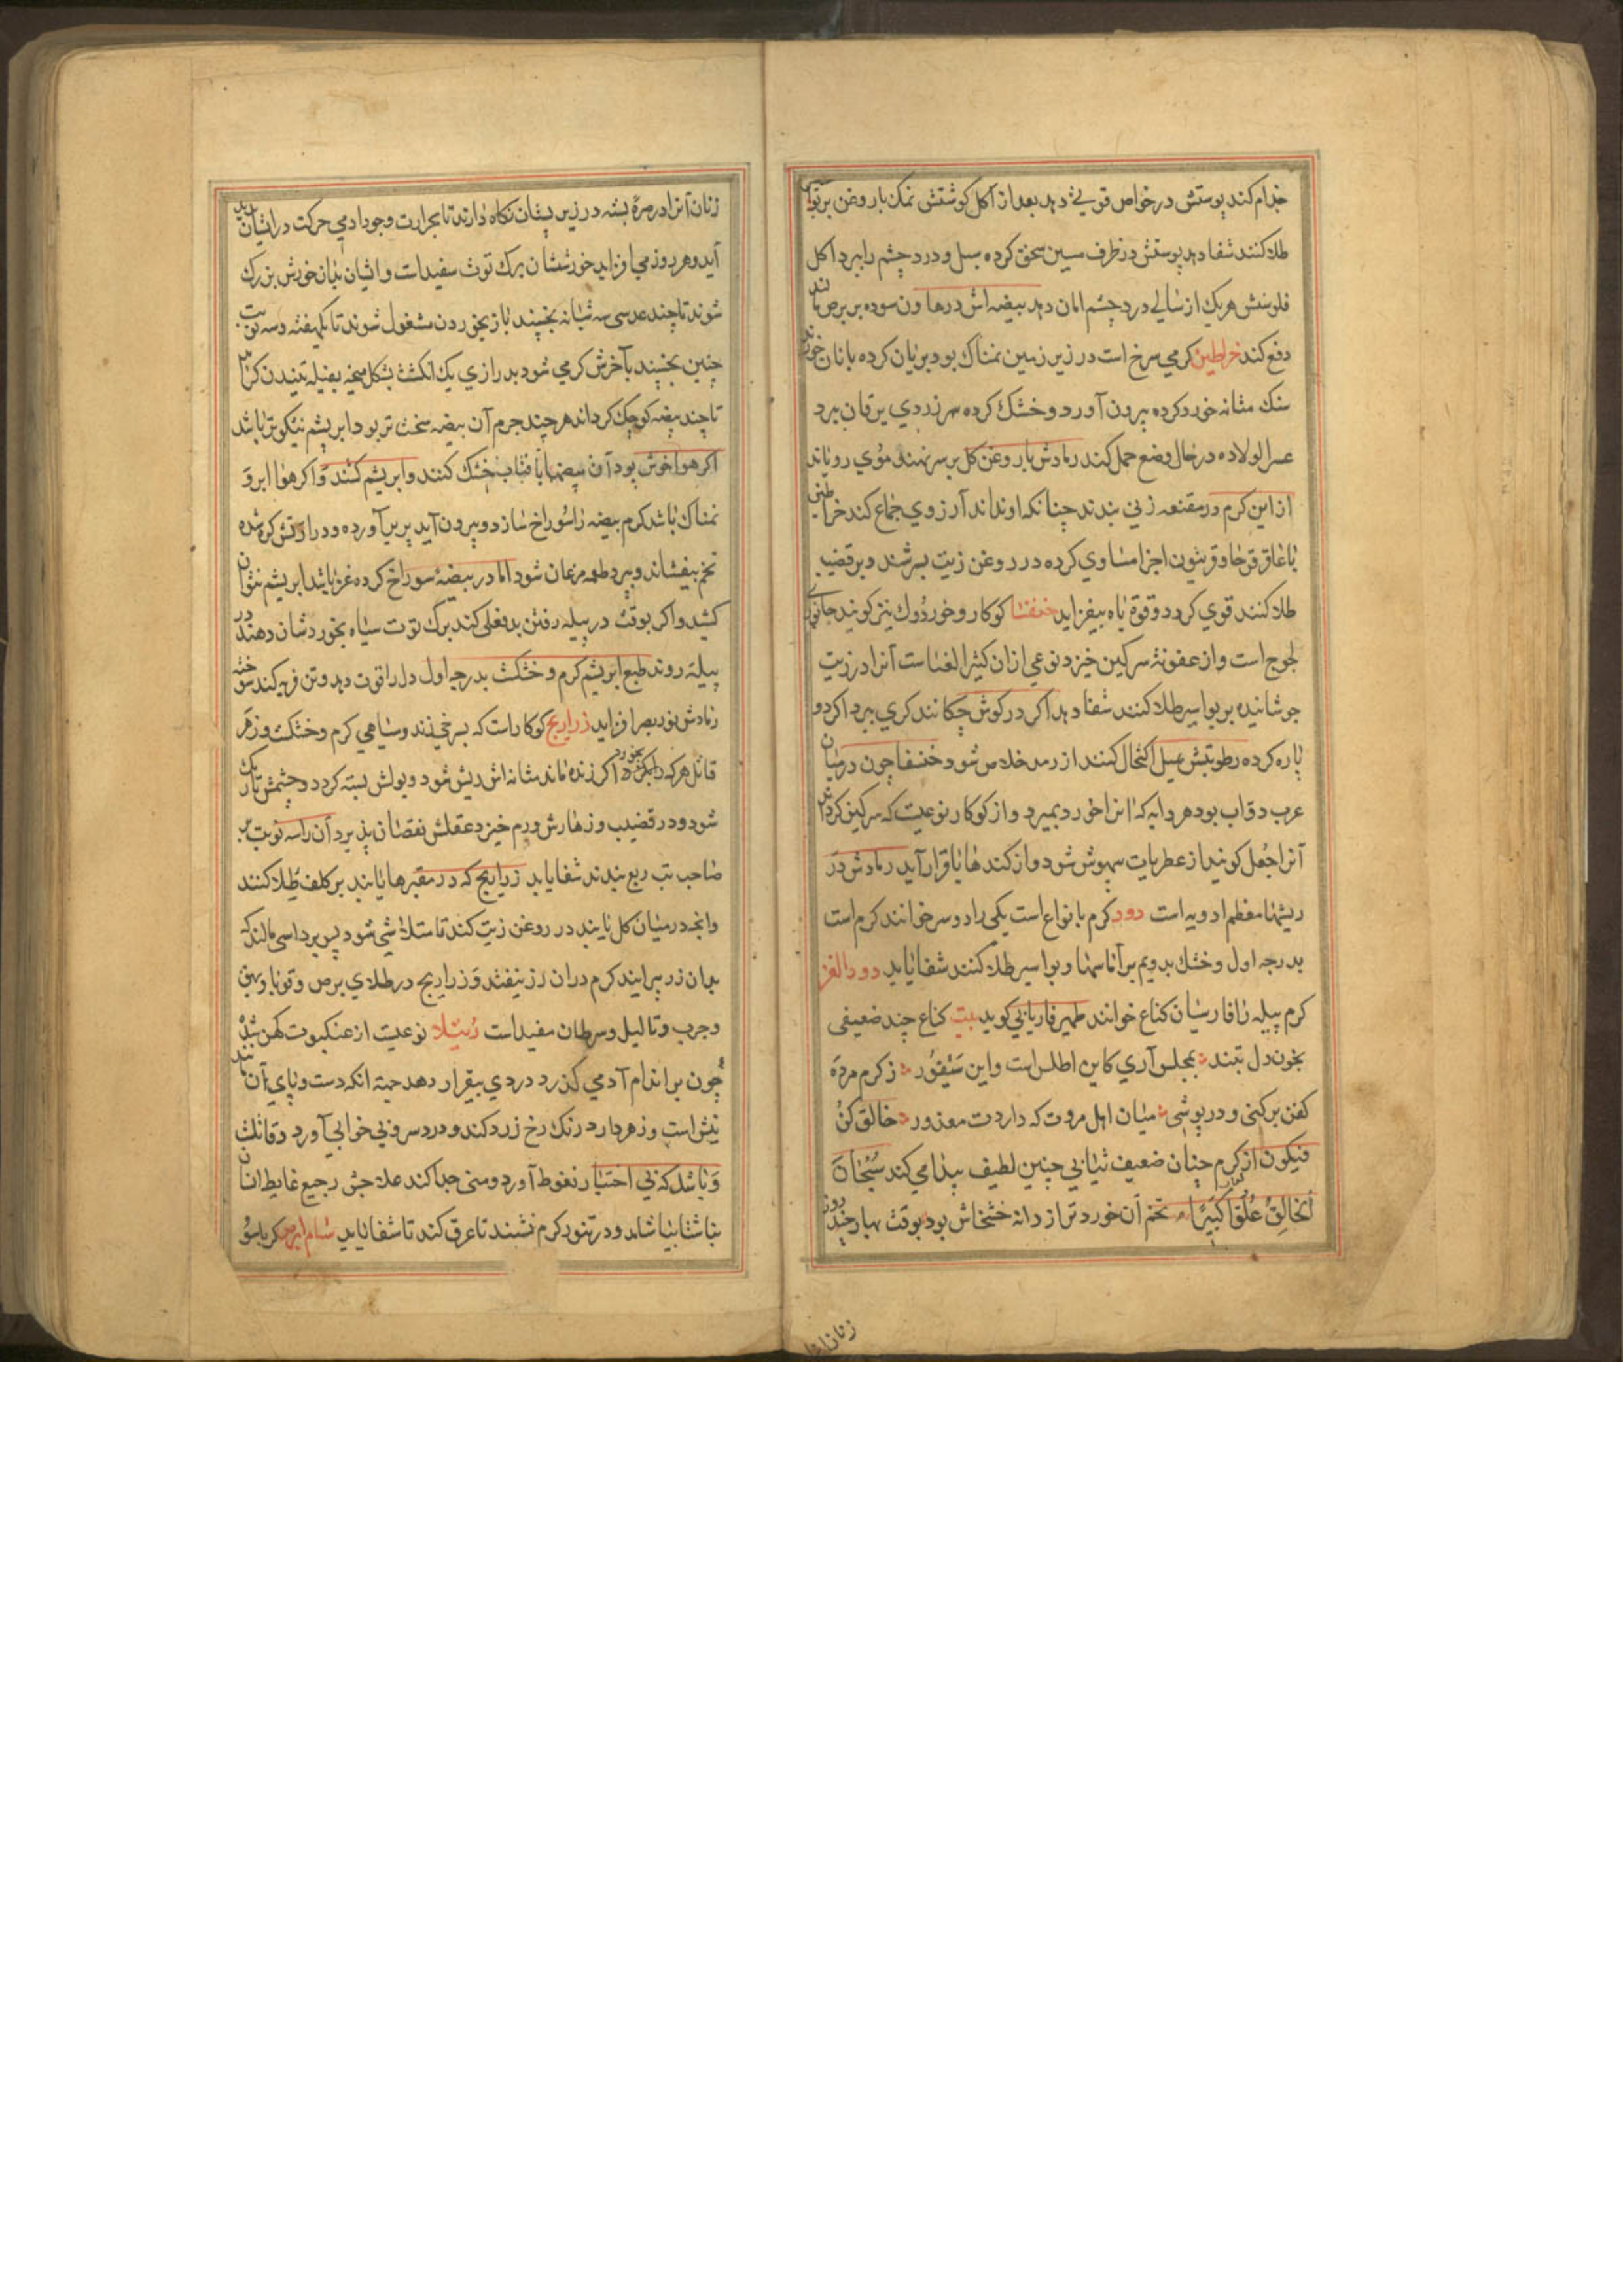 جذام کند پوستش در خواص قریب دهد بعد از اکل کوشتش نمک با روغن بر
طلا کنند شفا دهد پوستش در ظرف مسین سحق کرده سبل و درد چشم را ببرد اکل
فلوسش هریک از سالی درد چشم امان دهد بیضه اش در هاون سوده بر برص مالند
دفع کند خراطین کرمی سرخ است در زیر زمین نمناک بود بریان کرده با نان خورند
سنک مثانه خورد کرده بیرون آورد و خشک کرده سر زردی یرقان برد
عسر الولاده در حال وضع حمل کند رمادش با روغن کل بر سر نهند موی رویاند
از این کرم در مقنعه زنی بندند چنانکه او نداند آرزوی جماع کند خراطین
با عاقرقرحا و فرفیون اجزا مساوی کرده در روغن زیت بسرشند و بر قضیب
طلا کنند قوی کردد و قوة باه بیفزاید خنفسا کوکار و خوردوک نیز کویند جانوری
لجوج است و از عفونة سرکین خیزد نوعی ازان کثیر الغناست آنرا در زیت
جوشانیده بر بواسیر طلا کنند شفا دهد اکر در کوش چکانند کری ببرد اکر دو
پاره کرده رطوبتش بمیل اکتحال کنند از رمد خلاص شود خنفسا چون در میان
عرب دواب بود هر دابه که انرا خورد بمیرد و از کوکار نوعیست که سرکین کرداند
آنرا جُعل کویند از عطریات بیهوش شود و از کندها با قرار آید رمادش در
ریشها معظم ادویه است دود کرم بانواع است یکی را دوسر خوانند کرم است
بدرجه اول و خشک بدویم بر آماسها و بواسیر طلا کنند شفا یابد دود القز
کرم پیله را فارسیان کناغ خوانند ظهیر فاریابی کوید بیت کناغ چند ضعیفی
بخون دل بتند بمجلس آری کاین اطلس است و این سیفور ز کرم مرده
کفن برکنی و در پوشی میان اهل مروت که داردت معذور خالق کن
فیکون از کرم چنان ضعیف ثیابی چنین لطیف پیدا می کند سُبحان
الخالق عُلوّا کبیرًا تخم آن خوردتر از دانه خشخاش بود بوقت بهار چند روز
زنان آنرا
زنان آنرا در صرة بسته در زیر پستان نکاه دارند تا بحرارت وجود ادمی حرکت در ایشان پدید
آید و هر روز می افزاید خورششان برک توث سفید است و ایشان بدان خورش بزرک
شوند تا چند عدسی سه شبانه بخسپند باز بخوردن مشغول شوند تا یکهفته و سه نوبت
چنین بخسپند بآخرش کرمی شود بدرازی یک انکشت بشکل بعد پیله تنیدن کرد
تا چند بیضه کوچک کرداند هر چند جرم آن بیضه سخت تر بود ابریشم نیکوتر باشد
اکر هوا خوش بود آن بیضها بآفتاب خشک کنند و ابریشم کشند و اکر هوا ابر و
نمناک باشد کرم بیضه را سوراخ سازد و بیرون آید پر برآورده و دراز نفس کرم شده
تخم بیفشاند و بمیرد طعمه مرغان شود اما در بیضه سوراخ کرده غز باشد ابریشم نتوان
کشید و اکر بوقت در پیله رفتن بد فعلی کند برک توت سیاه بخوردشان دهند در
پیله روند طبع ابریشم کرم و خشکست بدرجه اول دل را قوت دهد و تن فربه کند سوخته
رمادش نور بصر افزاید زراریح کوکار است که بسرخی زند و سیاهی کرم و خشکست و زهر
قاتل هر که را بکزد بخورد اکر زنده ماند مثانه اش ریش شود و بولش بسته کردد و چشمش تاریک
شود و در قضیب و زهارش ورم خیزد عقلش نقصان پذیرد آن را سه نوبت بر
صاحب تب ربع بندند شفا یابد زراریح که در مقبرها یابند بر کلف طلا کنند
وانچه در میان کل یابند در روغن زیت کند تا متلاشی شود پس بر داسی مالند که
بدان زر پیرایند کرم دران رز نیفتد و زراریح در طلای برص و قوبا و بهق
و جرب و ثالیل و سرطان مفید است رُتیلا نوعیست از عنکبوت کهن شده
چون بر اندام آدمی کذرد دردی بیقرار دهد جهة انکه دست و پای آن مانند
نیش است و زهر دارد رنک رخ زرد کند و درد سر و بی خوابی آورد و قاتلست
و باشد که بی اختیار نعوظ آورد و منی جدا کند علاجش رجیع غایط انسان
بناشتا بیاشامد و در تنور کرم نشیند تا عرق کند تا شفا یابد سام ابرص کرباسو